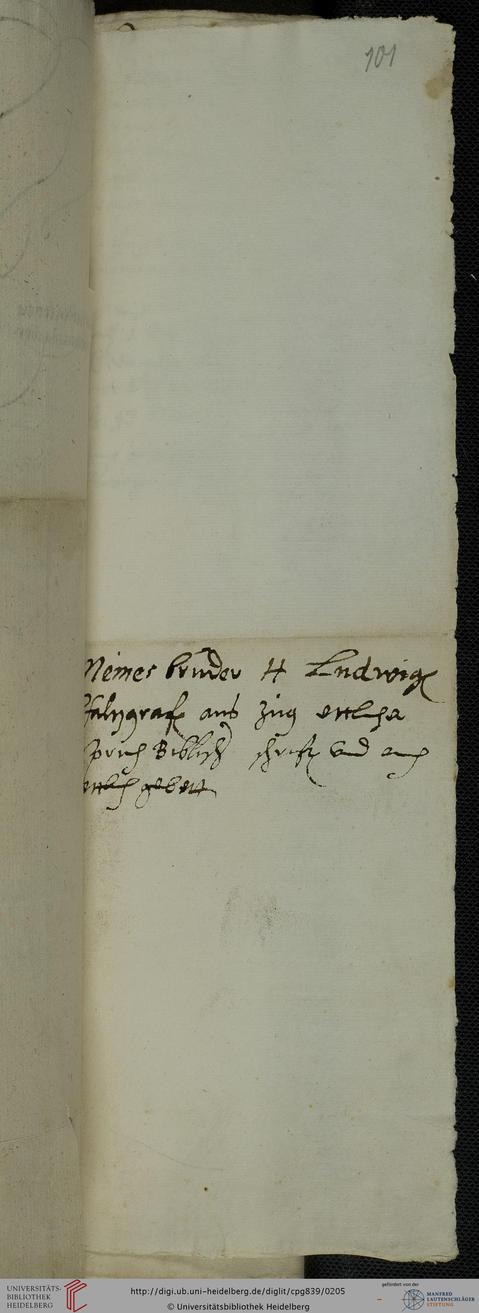 101
Meines bruder H Ludwig
Pfaltzgraf aus Zug ettlicher
spruch Biblischer schrift vnd auch
ettlich gebett
UNIVERSITÄTS-
BIBLIOTHEK
HEIDELBERG
http://digi.ub.uni-heidelberg.de/diglit/cpg839/0205
© Universitätsbibliothek Heidelberg
gefördert von der
MANFRED
LAUTENSCHLÄGER
STIFTUNG